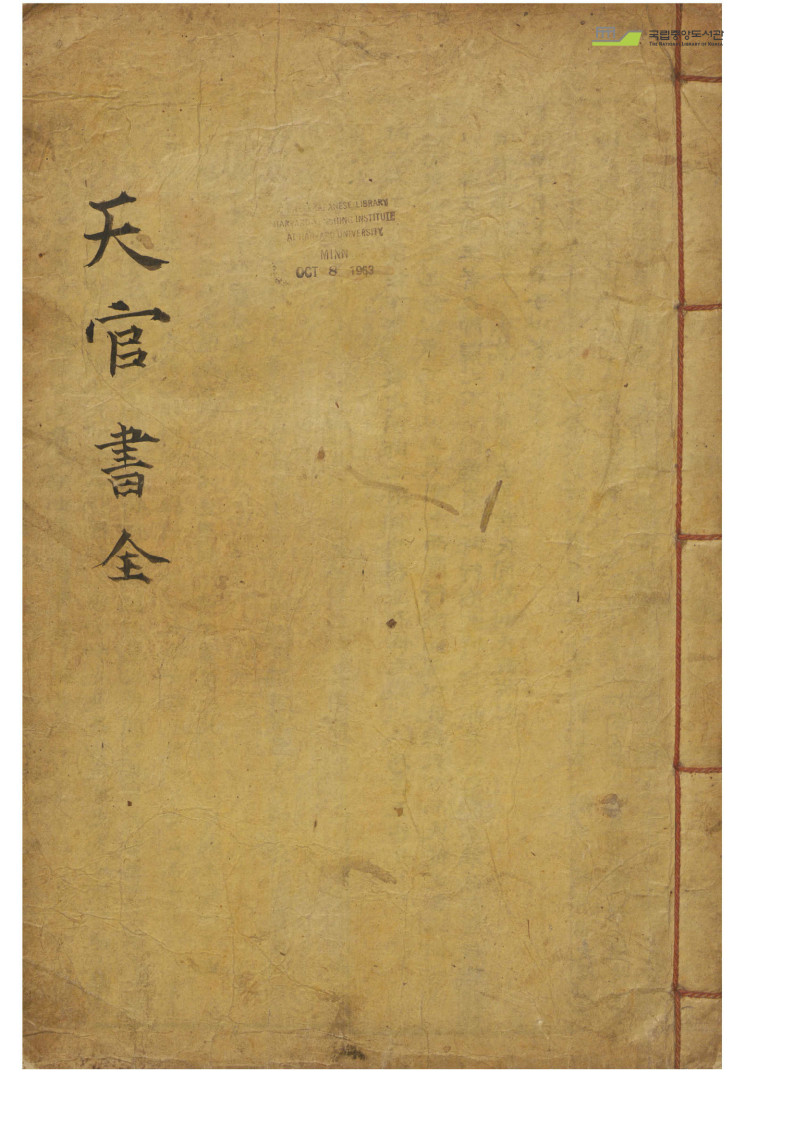 국립중앙도서관
THE NATIONAL LIBRARY OF KOREA
天官書全
JAPANESE LIBRARY
INSTITUTE
AT HARVARD UNIVERSITY
MINN
OCT 8 1963